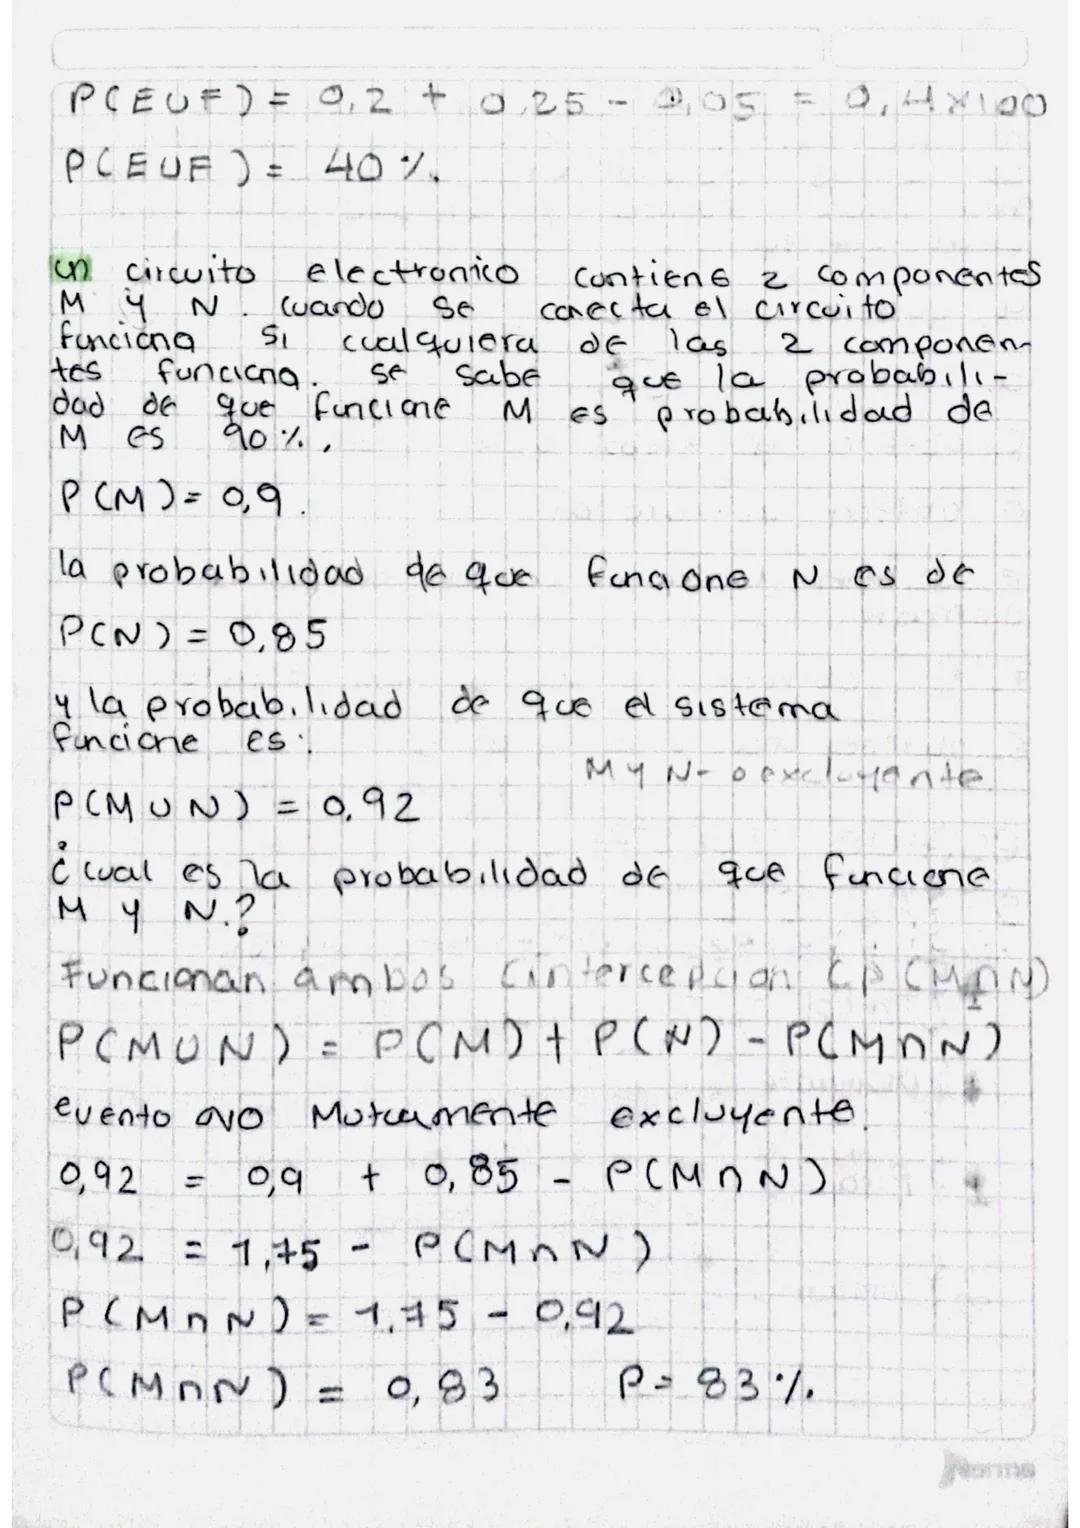 P(EUF) = 0,2 + 0,25 - 0,05 = 0,4x100
P(EUF) = 40%.
un circuito electronico contiene 2 componentes
M y N. cuando se conecta el circuito
funciona si cualquiera de las 2 componen-
tes funciona. se sabe que la probabili-
dad de que funcione M es probabilidad de
M es 90%,
P(M) = 0,9.
la probabilidad de que funcione N es de
P(N) = 0,85
y la probabilidad de que el sistema
funcione es:
M y N- o excluyente
P(M U N) = 0,92
¿cual es la probabilidad de que funcione
M y N.?
Funcionan ambos (intercepcion (P(M∩N)
P(MUN) = P(M) + P(N) - P(M∩N)
evento NO Mutuamente excluyente.
0,92 = 0,9 + 0,85 - P(M∩N)
0,92 = 1,75 - P(M∩N)
P(M∩N) = 1,75 - 0,92
P(M∩N) = 0,83 P= 83%.
Norma